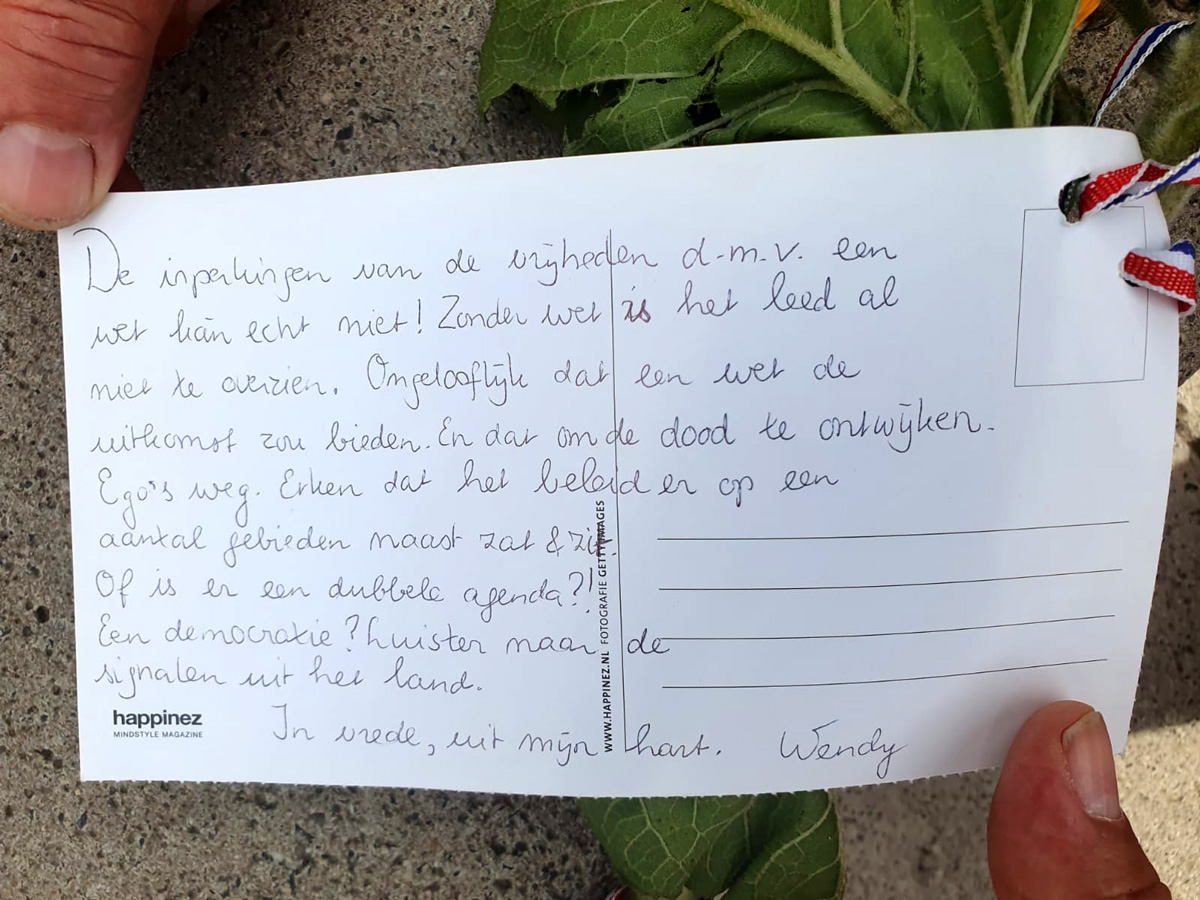 De inperkingen van de vrijheden d.m.v. een
wet kán echt niet! Zonder wet is het leed al
niet te overzien. Ongelooflijk dat een wet de
uitkomst zou bieden. En dat om de dood te ontwijken.
Ego's weg. Erken dat het beleid er op een
aantal gebieden naast zat & zit.
Of is er een dubbele agenda?!
Een democratie? Luister naar de
signalen uit het land.
In vrede, uit mijn hart. Wendy
happinez
MINDSTYLE MAGAZINE
WWW.HAPPINEZ.NL FOTOGRAFIE GETTY IMAGES